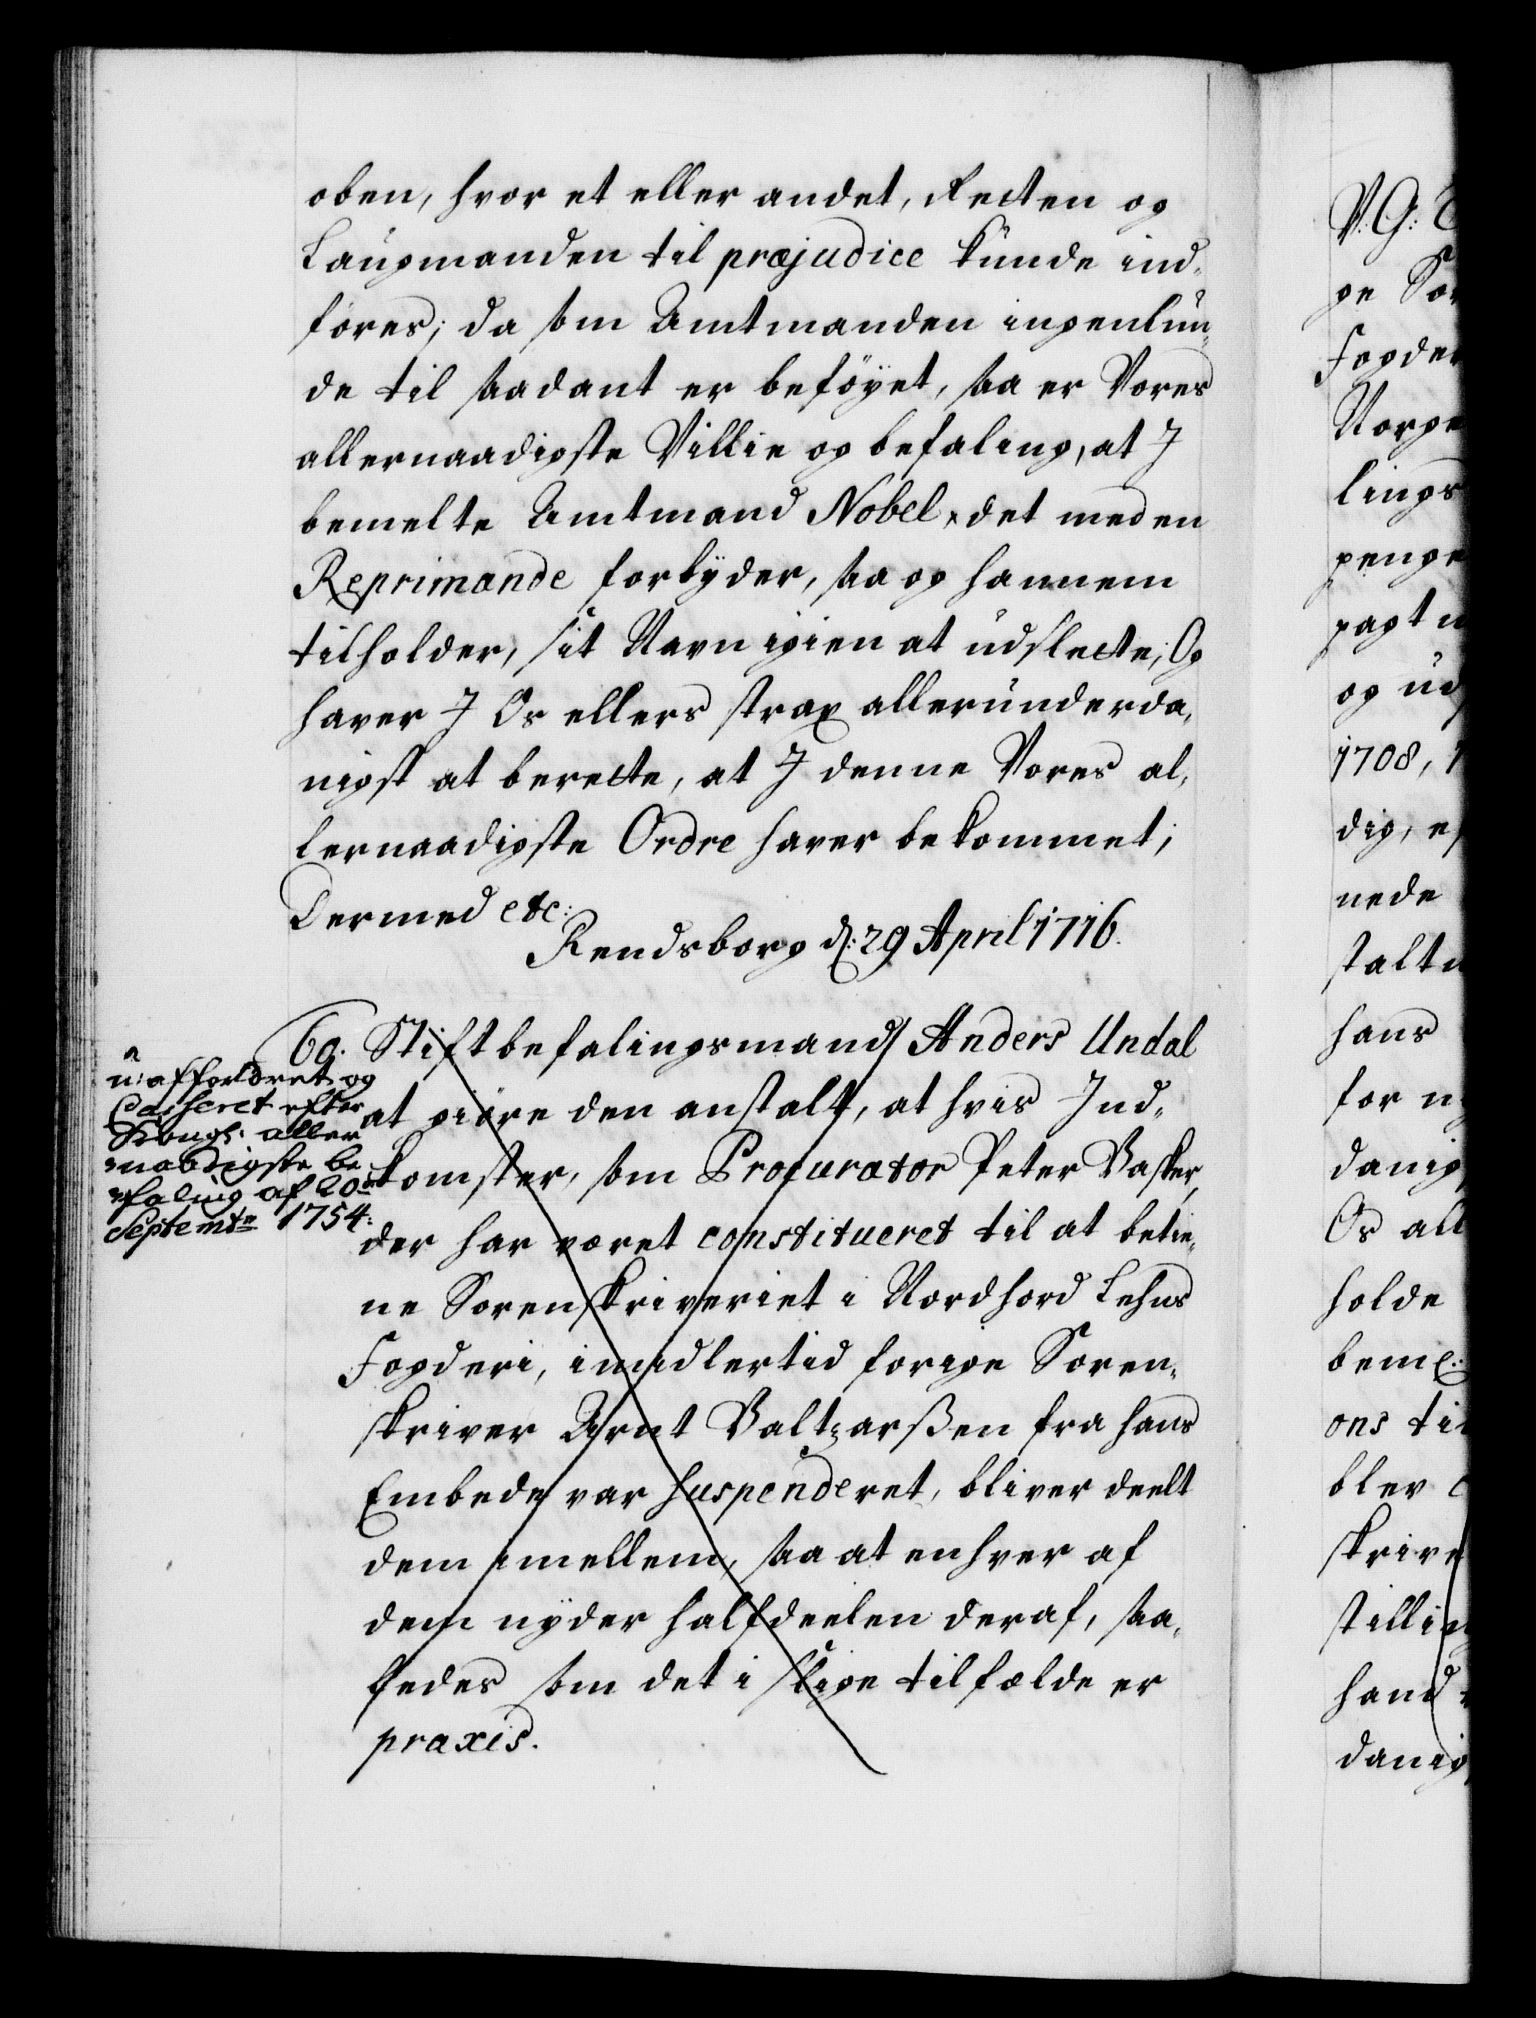 oben, hvor et eller andet, Retten og
Laugmanden til præjudice kunde ind-
føres; da som Amtmanden ingenlun-
de til saadant er beføyet, saa er Vores
allernaadigste Villie og befaling, at I
bemelte Amtmand Nobel det med en
Reprimande forbyder, saa og hannem
tilholder, sit Navn igien at udslette; Og
haver I Os ellers strax allerunderda-
nigst at berette, at I denne Vores al-
lernaadigste Ordre haver bekommet;
Dermed etc:
Rendsborg d: 29 April 1716.
60. Stiftbefalingsmand Anders Undal
at giøre den anstalt, at hvis Ind-
komster, som Procurator Peter Vasker,
der har været constitueret til at betie-
ne Sorenskriveriet i Nordhord Lehns
Fogderi, imidlertid forige Soren-
skriver Arnt Baltzarßen fra hans
Embede var suspenderet, bliver deelt
dem imellem, saa at enhver af
dem nyder halfdeelen deraf, saa-
ledes som det i slige tilfælde er
praxis.
uaffordret og
Casseret efter
Kongl: aller
naadigste be
faling af 20de
Septembr 1754.
V: G: T
ge So
Fogde
Norge
lings
penge
pagt
og ud
1708, 1
dig, e
nede
stalt
hans
for n
danig
Os all
holde
beme:
ons ti
blev
skrive
stillin
hand
danig